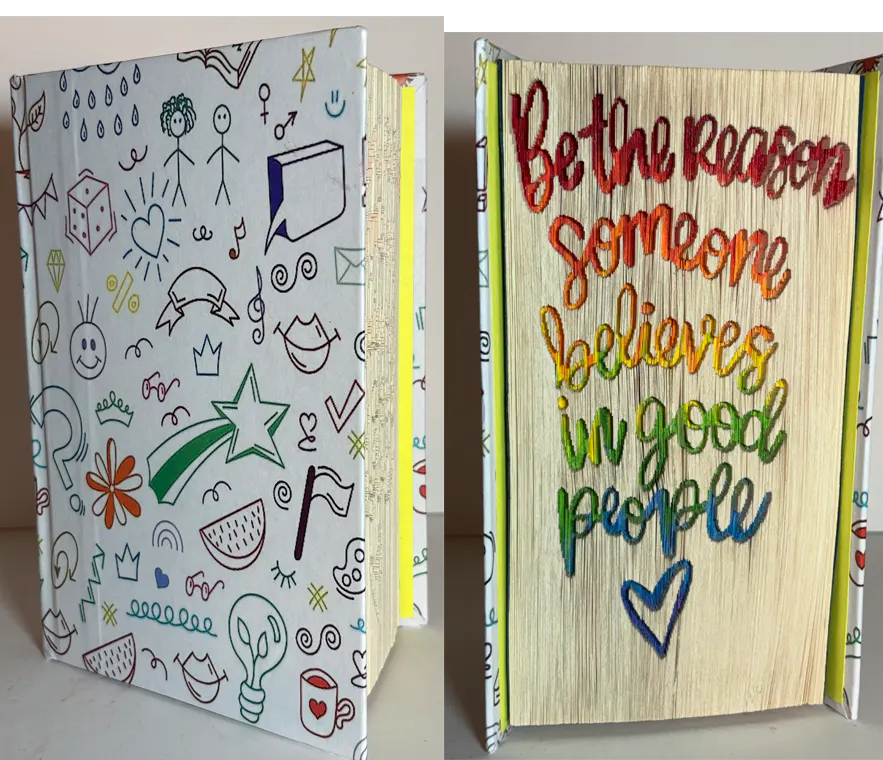 Be the Reason
someone
believes
in good
people